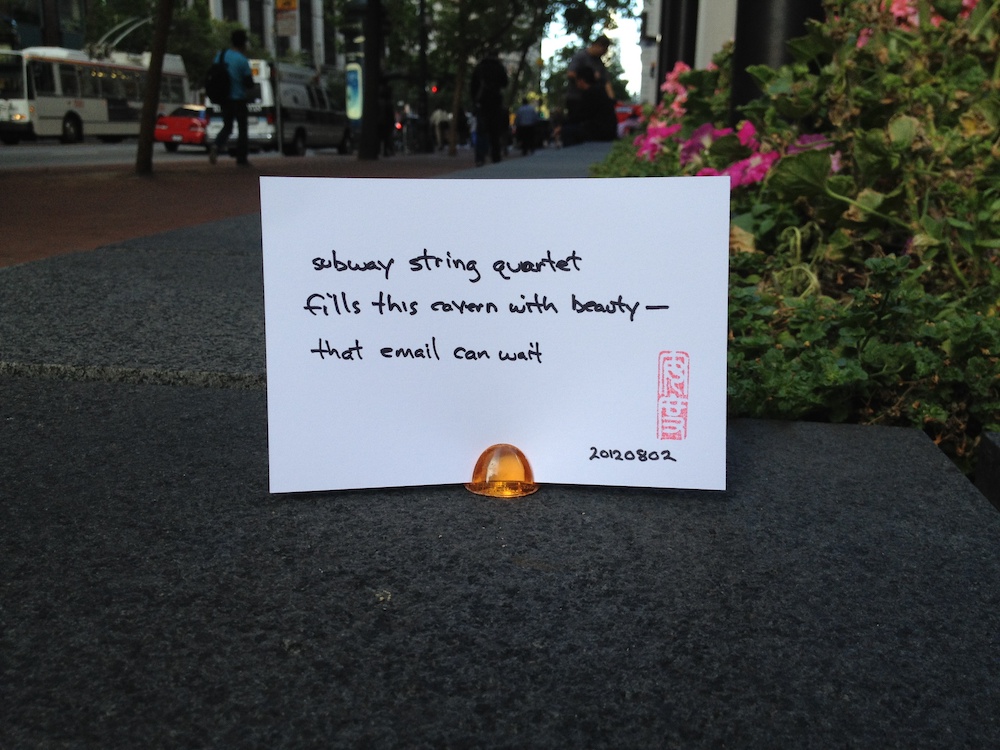 subway string quartet
fills this cavern with beauty—
that email can wait
20120802